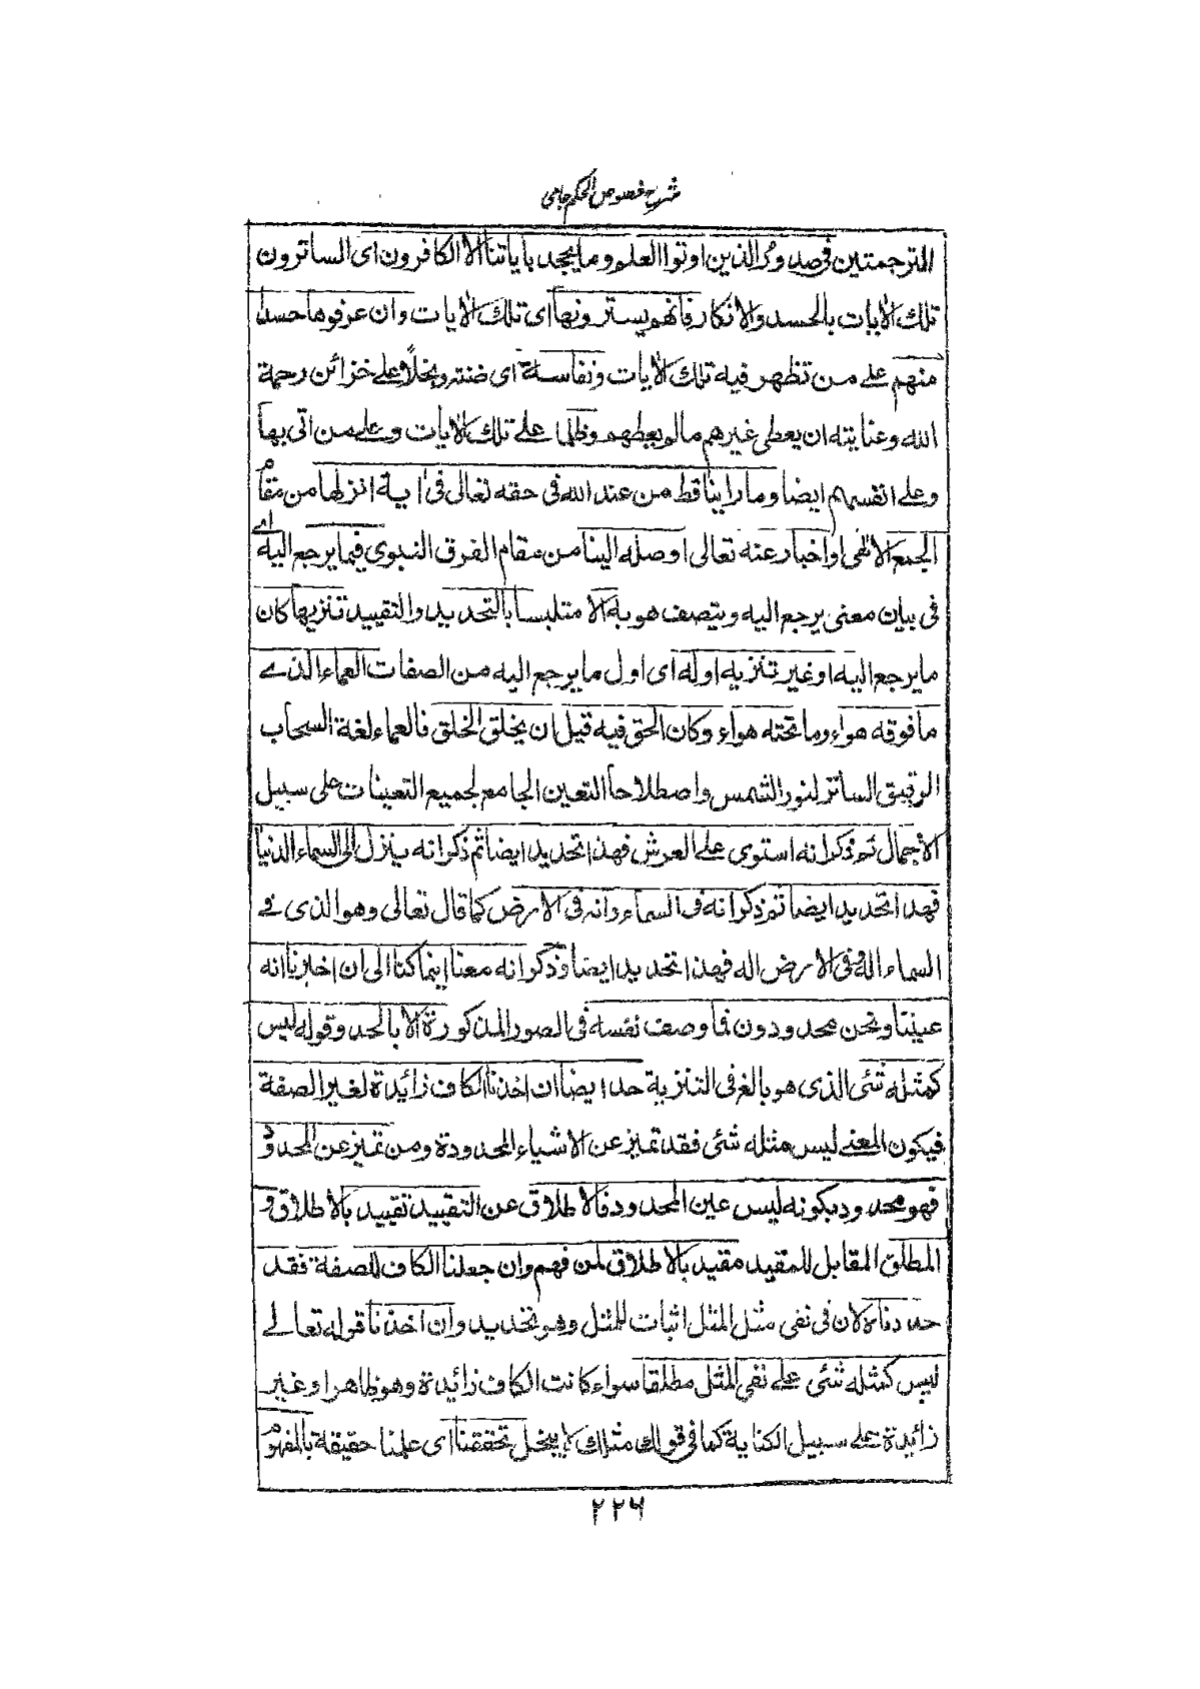 شرح فصوص الحكم جامی
المترجمتين فى صدور الذين اوتوا العلم وما يجحد باياتنا الا الكافرون اى الساترون
تلك الايات بالحسد والانكار فانهم يسترونها اى تلك الايات وان عرفوها حسدا
منهم على من تظهر فيه تلك الايات ونفاسة اى ضنة وبخلاً على خزائن رحمة
الله وعنايته ان يعطى غيرهم ما لو يعطهم وظلما على تلك الايات وعلى من اتى بها
وعلى انفسهم ايضا وما راينا قط من عند الله فى حقه تعالى فى اية انزلها من مقام
الجمع الالهى او اخبار عنه تعالى اوصله الينا من مقام الفرق النبوى فيما يرجع اليه اے
فى بيان معنى يرجع اليه ويتصف هو به الا متلبسا بالتحديد والتقييد تنزيها كان
ما يرجع اليه او غير تنزيه اوله اى اول ما يرجع اليه من الصفات العماء الذے
ما فوقه هواء وما تحته هواء وكان الحق فيه قبل ان يخلق الخلق فالعماء لغة السحاب
الرقيق الساتر لنور الشمس واصطلاحا التعين الجامع لجميع التعينات على سبيل
الاجمال ثم ذكر انه استوى على العرش فهذا تحديد ايضا ثم ذكر انه ينزل الى السماء الدنيا
فهذا تحديد ايضا ثم ذكر انه فى السماء وانه فى الارض كما قال تعالى وهو الذى فے
السماء اله وفى الارض اله فهذا تحديد ايضا وذكر انه معنا اينما كنا الى ان اخبرنا انه
عيننا ونحن محدودون فما وصف نفسه فى الصور المذكورة الا بالحد وقوله ليس
كمثله شئى الذى هو بالغ فى التنزية حد ايضا ان اخذنا الكاف زائيدة لغير الصفة
فيكون المعنے ليس مثله شئى فقد تميز عن الاشياء المحدودة ومن تميز عن المحدود
فهو محدود بكونه ليس عين المحدود فالاطلاق عن التقييد تقييد بالاطلاق و
المطلق المقابل للمقيد مقيد بالاطلاق لمن فهم وان جعلنا الكاف للصفة فقد
حددناه لان فى نفى مثل المثل اثبات للمثل وهو تحديد وان اخذنا قوله تعالے
ليس كمثله شئى على نفى المثل مطلقا سواء كانت الكاف زائيدة وهو ظاهر او غير
زائيدة على سبيل الكناية كما فى قولك مثلك لا يبخل تحققنا اى علمنا حقيقة بالمفهوم
۲۲۶